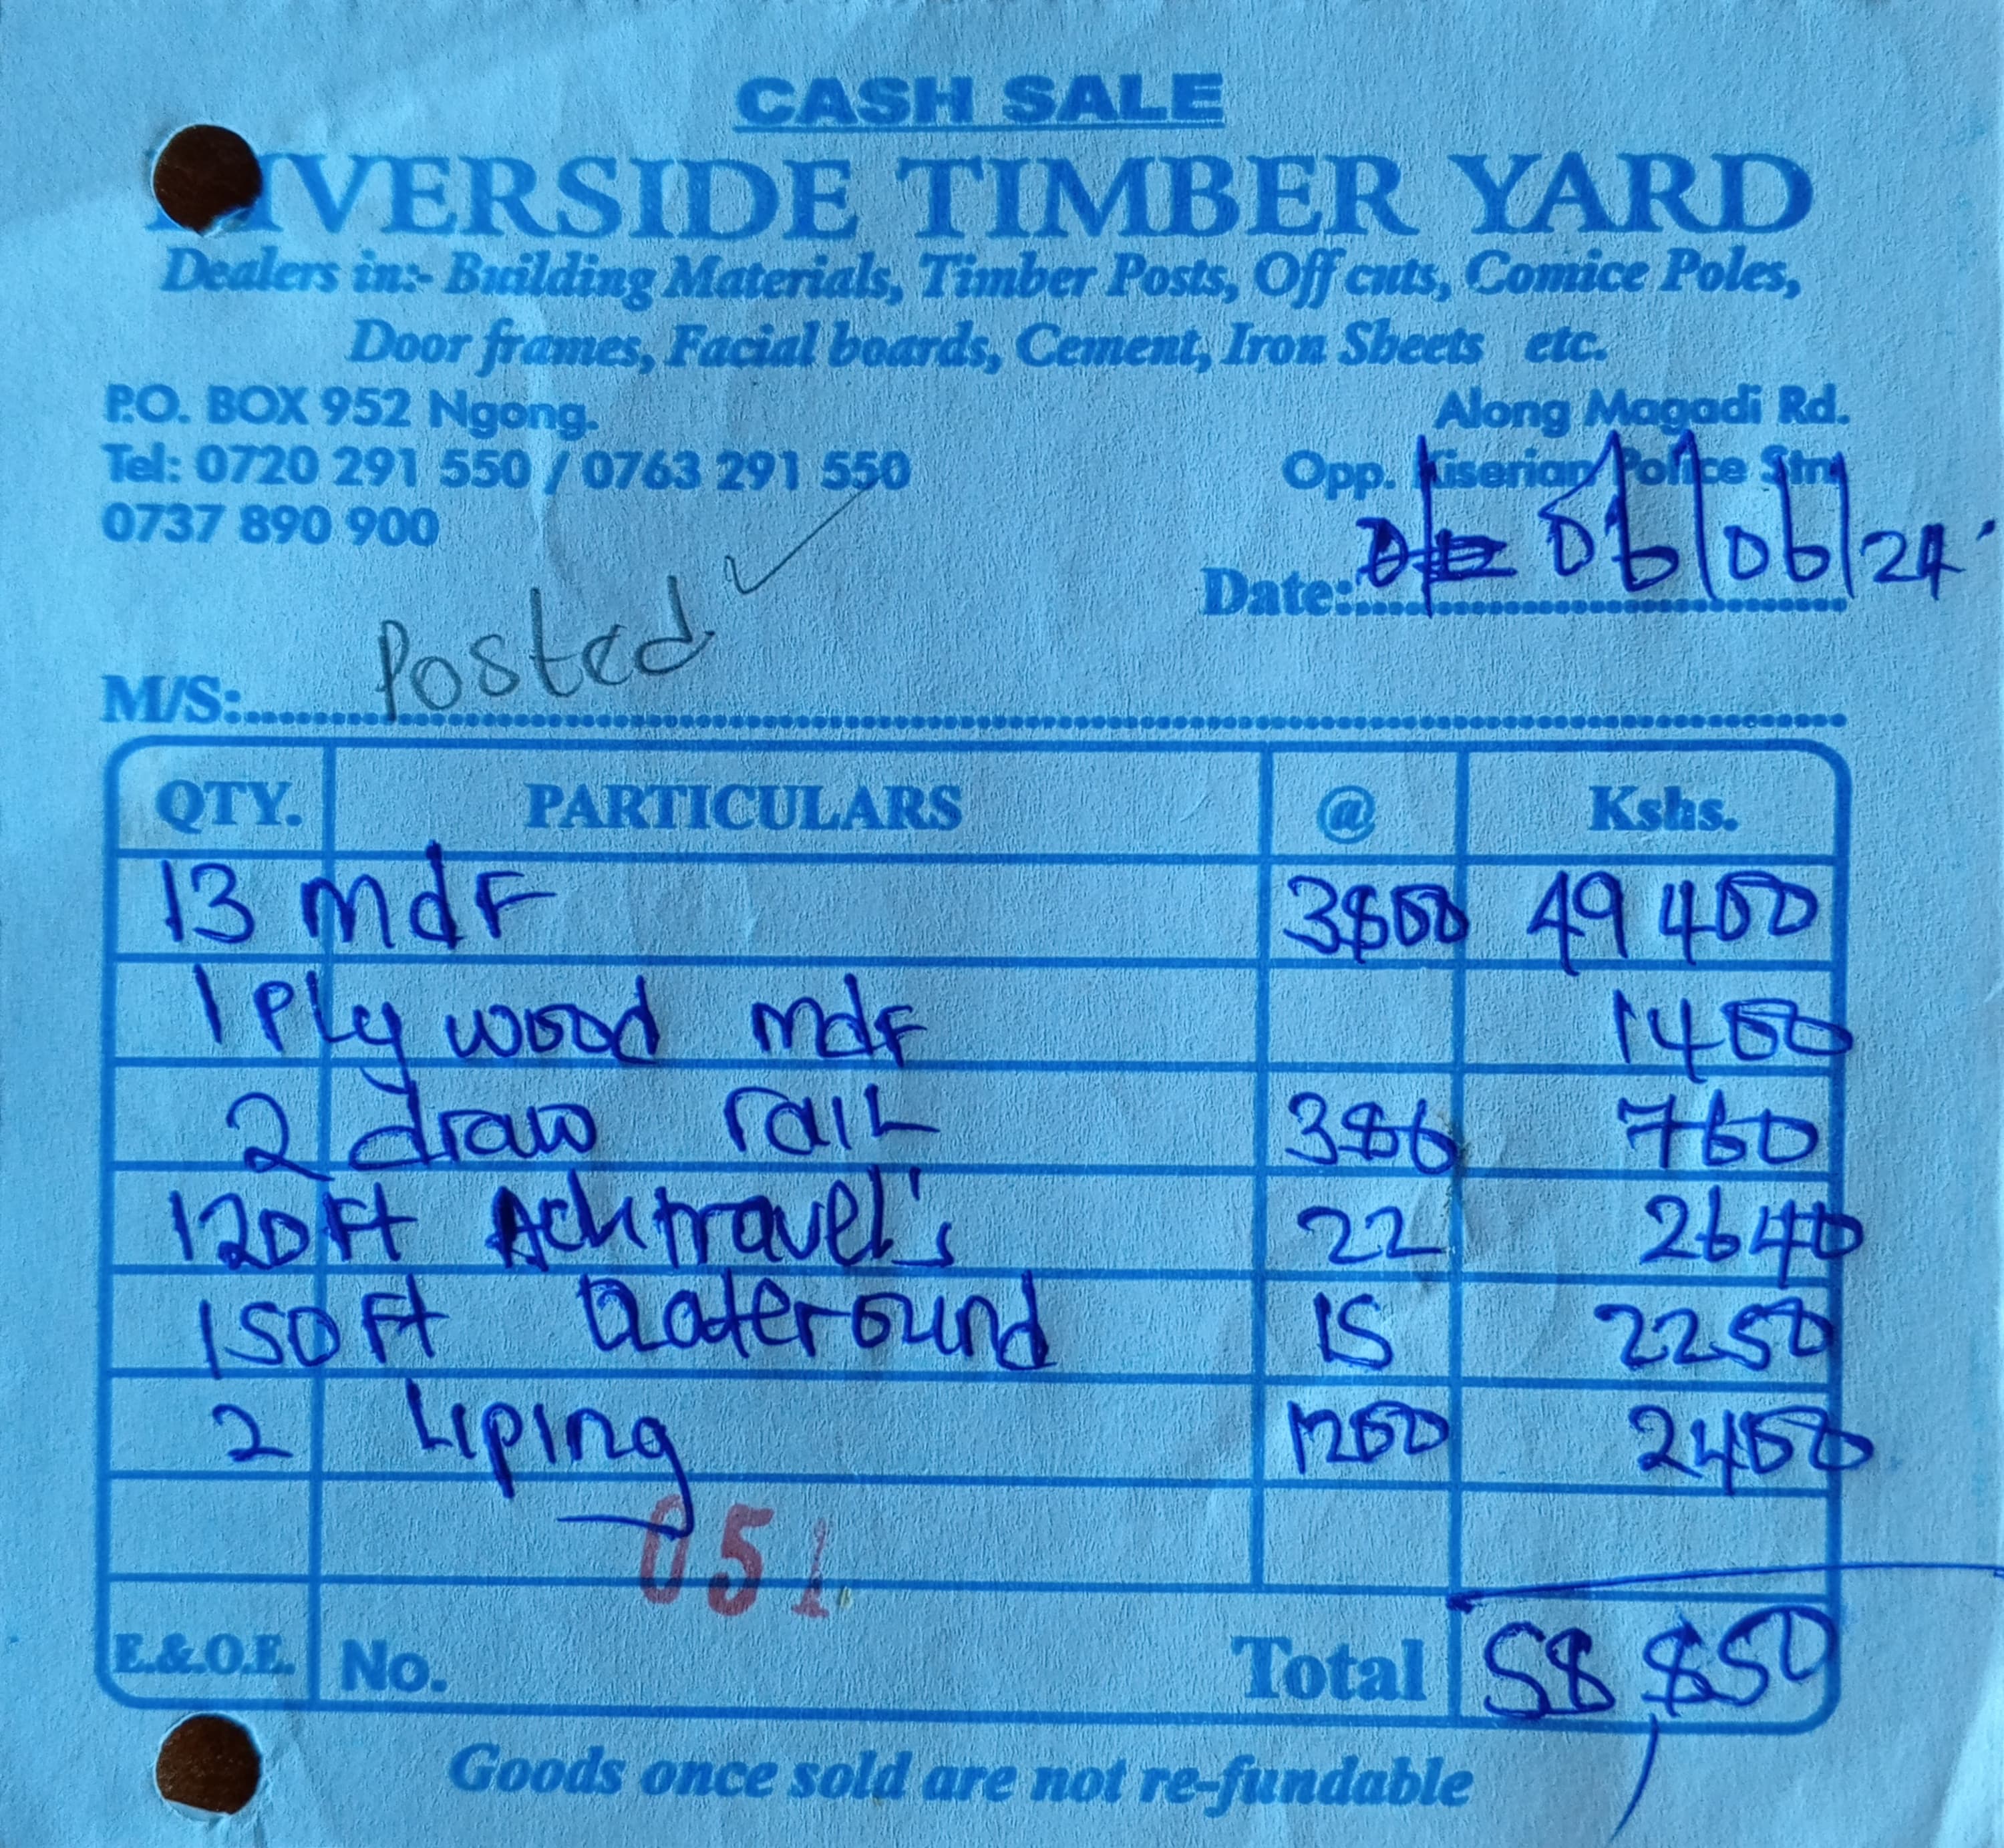 CASH SALE
RIVERSIDE TIMBER YARD
Dealers in:- Building Materials, Timber Posts, Off cuts, Comice Poles,
Door frames, Facial boards, Cement, Iron Sheets etc.
P.O. BOX 952 Ngong. Along Magadi Rd.
Tel: 0720 291 550 / 0763 291 550 Opp. Kiserian Police Stn
0737 890 900
Date: 06/06/24
M/S: Posted
QTY. PARTICULARS @ Kshs.
13 mdF 3800 49 400
1 Ply wood mdf 1400
2 draw rail 380 760
120 Ft Achtravel's 22 2640
150 Ft Quateround 15 2250
2 Liping 1200 2400
051
E.&.O.E. No. Total 58 850
Goods once sold are not re-fundable